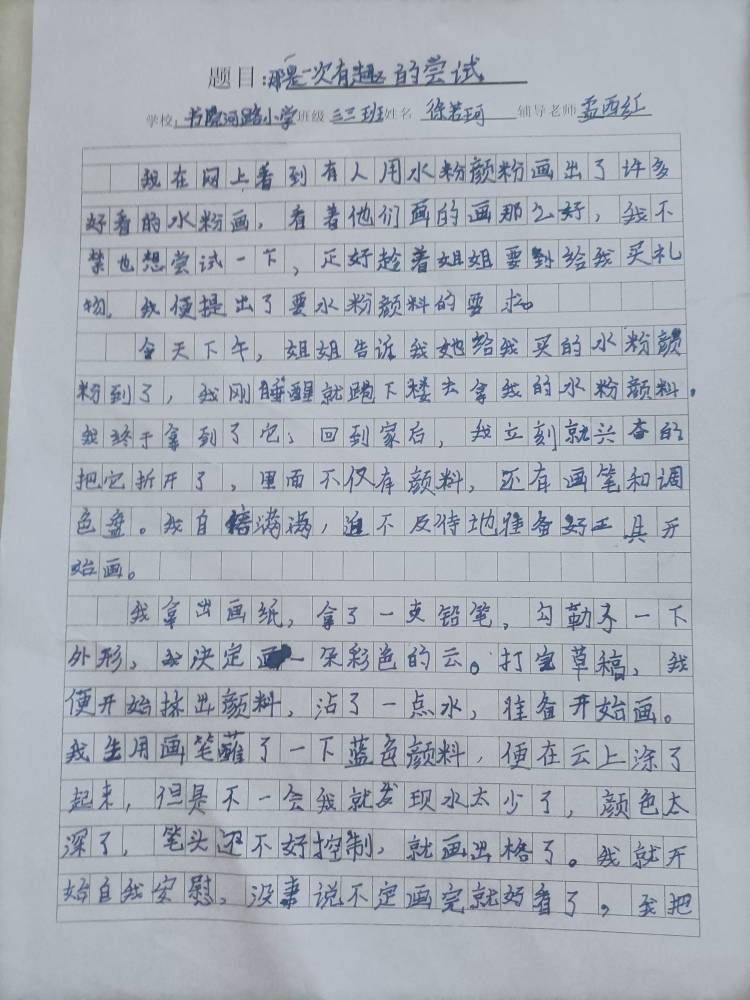 题目:那是一次有趣的尝试
学校:书院河路小学班级三三班姓名徐若珂辅导老师孟西红
我在网上看到有人用水粉颜粉画出了许多
好看的水粉画，看着他们画的画那么好，我不
禁也想尝试一下，正好趁着姐姐要给我买礼
物，我便提出了要水粉颜料的要求。
今天下午，姐姐告诉我她给我买的水粉颜
粉到了，我刚睡醒就跑下楼去拿我的水粉颜料。
我终于拿到了它；回到家后，我立刻就兴奋的
把它拆开了，里面不仅有颜料，还有画笔和调
色盘。我自信满满，迫不及待地准备好工具开
始画。
我拿出画纸，拿了一支铅笔，勾勒了一下
外形，我决定画一朵彩色的云。打完草稿，我
便开始抹出颜料，沾了一点水，准备开始画。
我先用画笔蘸了一下蓝色颜料，便在云上涂了
起来，但是不一会我就发现水太少了，颜色太
深了，笔头还不好控制，就画出格了。我就开
始自我安慰，没事说不定画完就好看了，我把